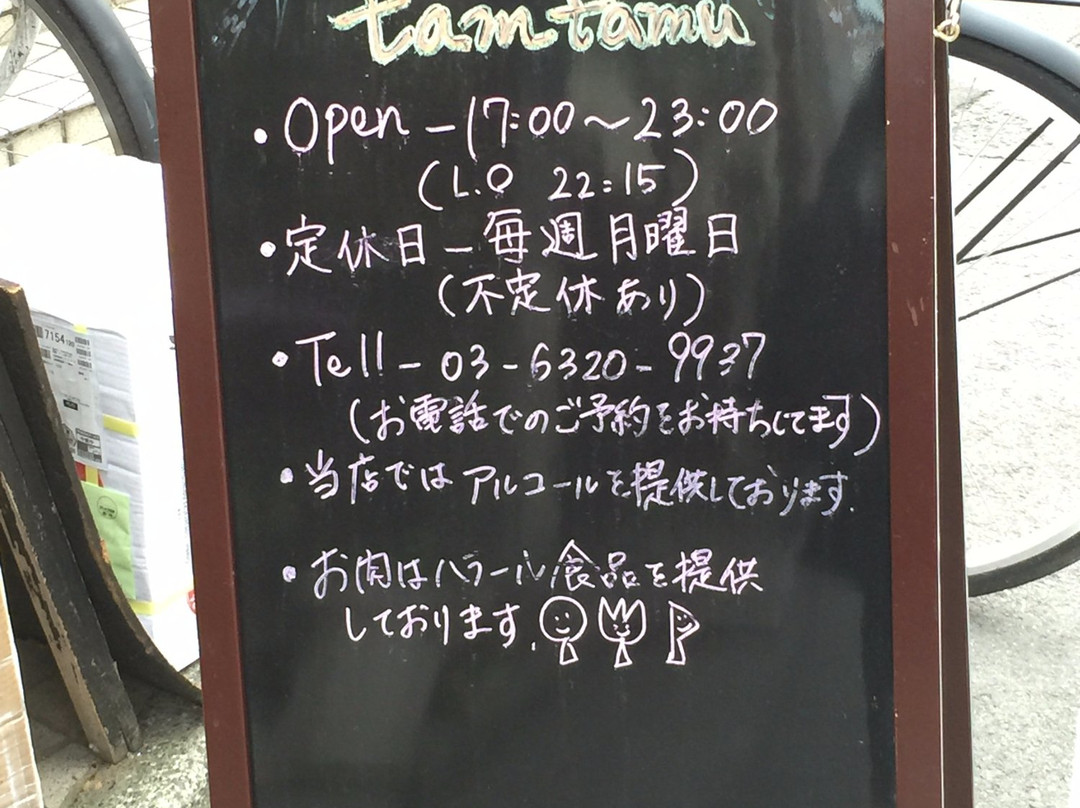 tamtamu
・Open – 17:00〜23:00
(L.O 22:15)
・定休日 – 毎週月曜日
(不定休あり)
・Tell – 03 – 6320 – 9937
(お電話でのご予約をお持ちしてます)
・当店では アルコールを提供しております.
・お肉はハラール食品を提供
しております.
7154